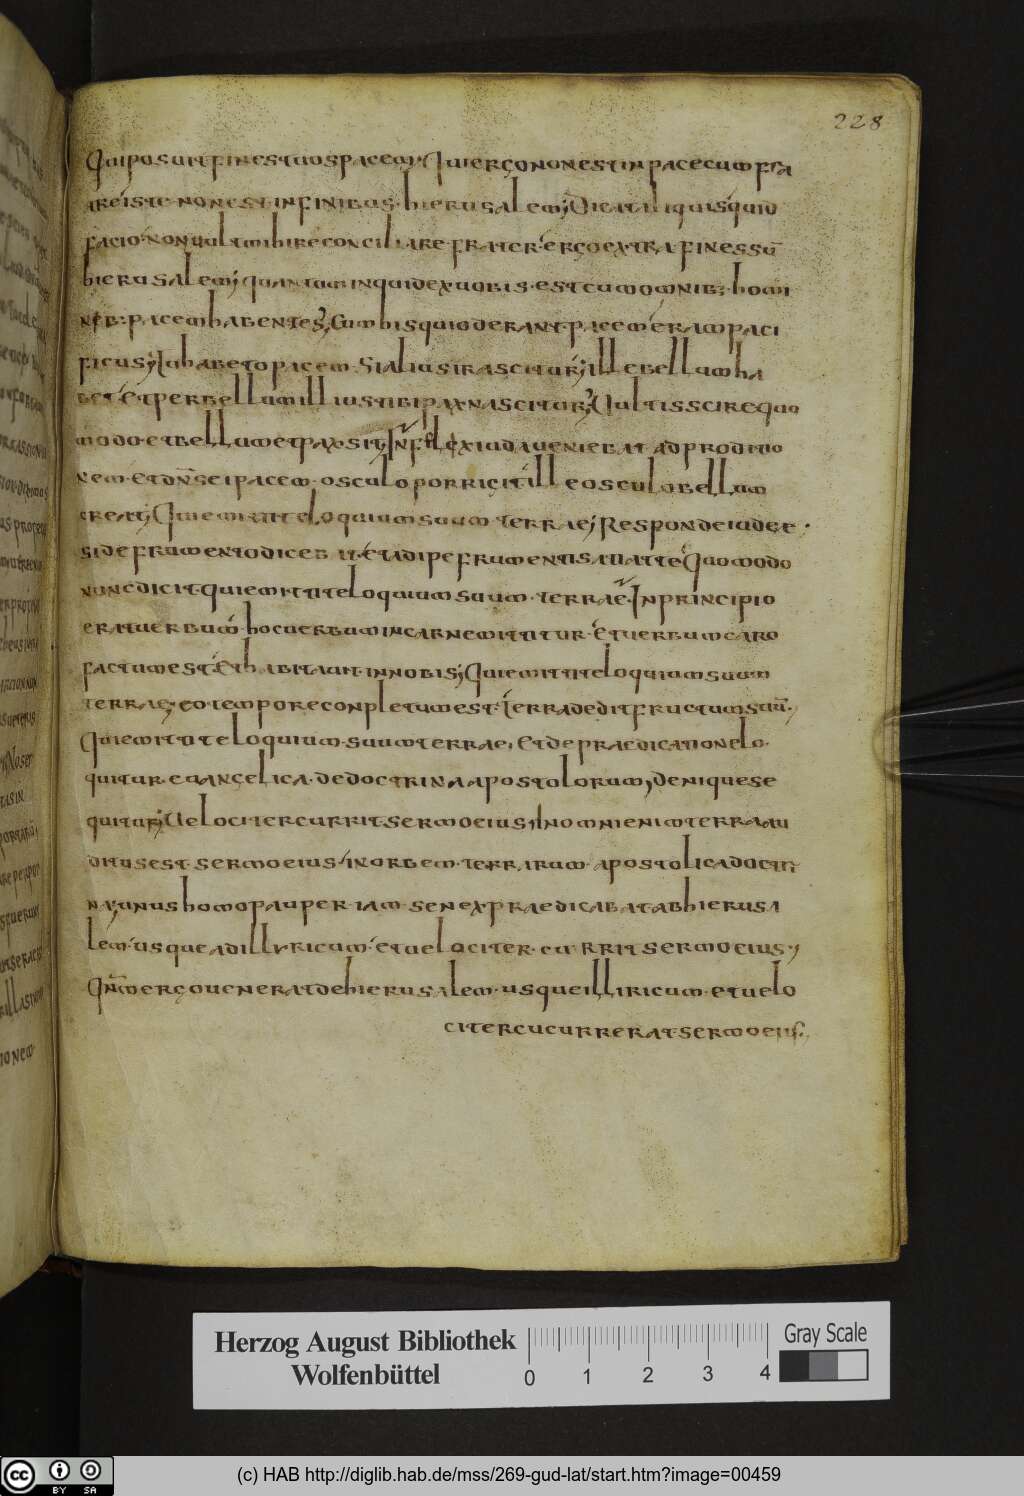 228
Qui posuit fines tuos pacem; Qui ergo non est in pace cum fra
tre iste non est in finibus hierusalem; Dicat aliquis quid
facio non uult mihi reconciliare frater ergo extra fines sū
hierusalem; quantum inquid ex uobis est cum omnib; homi
nib; pacem habentes; Cum his qui oderant pacem eram paci
ficus; Tu habeto pacem Si alius irascitur; ille bellum ha
bet et per bellum illius tibi pax nascitur; Vultis scire quo
modo et bellum et pax sit; In
nem et dn̄s ei pacem osculo porrigit ille osculo bellum
creat; Qui emittit eloquium suum terrae; Responde iudee
si de frumento dicebat et adipe frumenti satiat te Quomodo
nunc dicit qui emittit eloquium suum terrae In principio
erat uerbum hoc uerbum in carne mittitur Et uerbum caro
factum est Et habitauit in nobis; Qui emittit eloquium suum
terrae; eo tempore conpletum est terra dedit fructum suū;
Qui emittit eloquium suum terrae; Et de praedicatione lo
quitur euangelica de doctrina apostolorum; denique se
quitur; Uelociter currit sermo eius; In omni enim terra au
ditus est sermo eius in orbem terrarum apostolica doctri
na; unus homo pauper iam senex praedicabat ab hierusa
lem usque ad illyricum et uelociter currit sermo eius;
ergo uenerat de hierusalem usque illiricum et uelo
citer cucurrerat sermo eius.
Herzog August Bibliothek
Wolfenbüttel
0 1 2 3 4
Gray Scale
cc BY SA
(c) HAB http://diglib.hab.de/mss/269-gud-lat/start.htm?image=00459